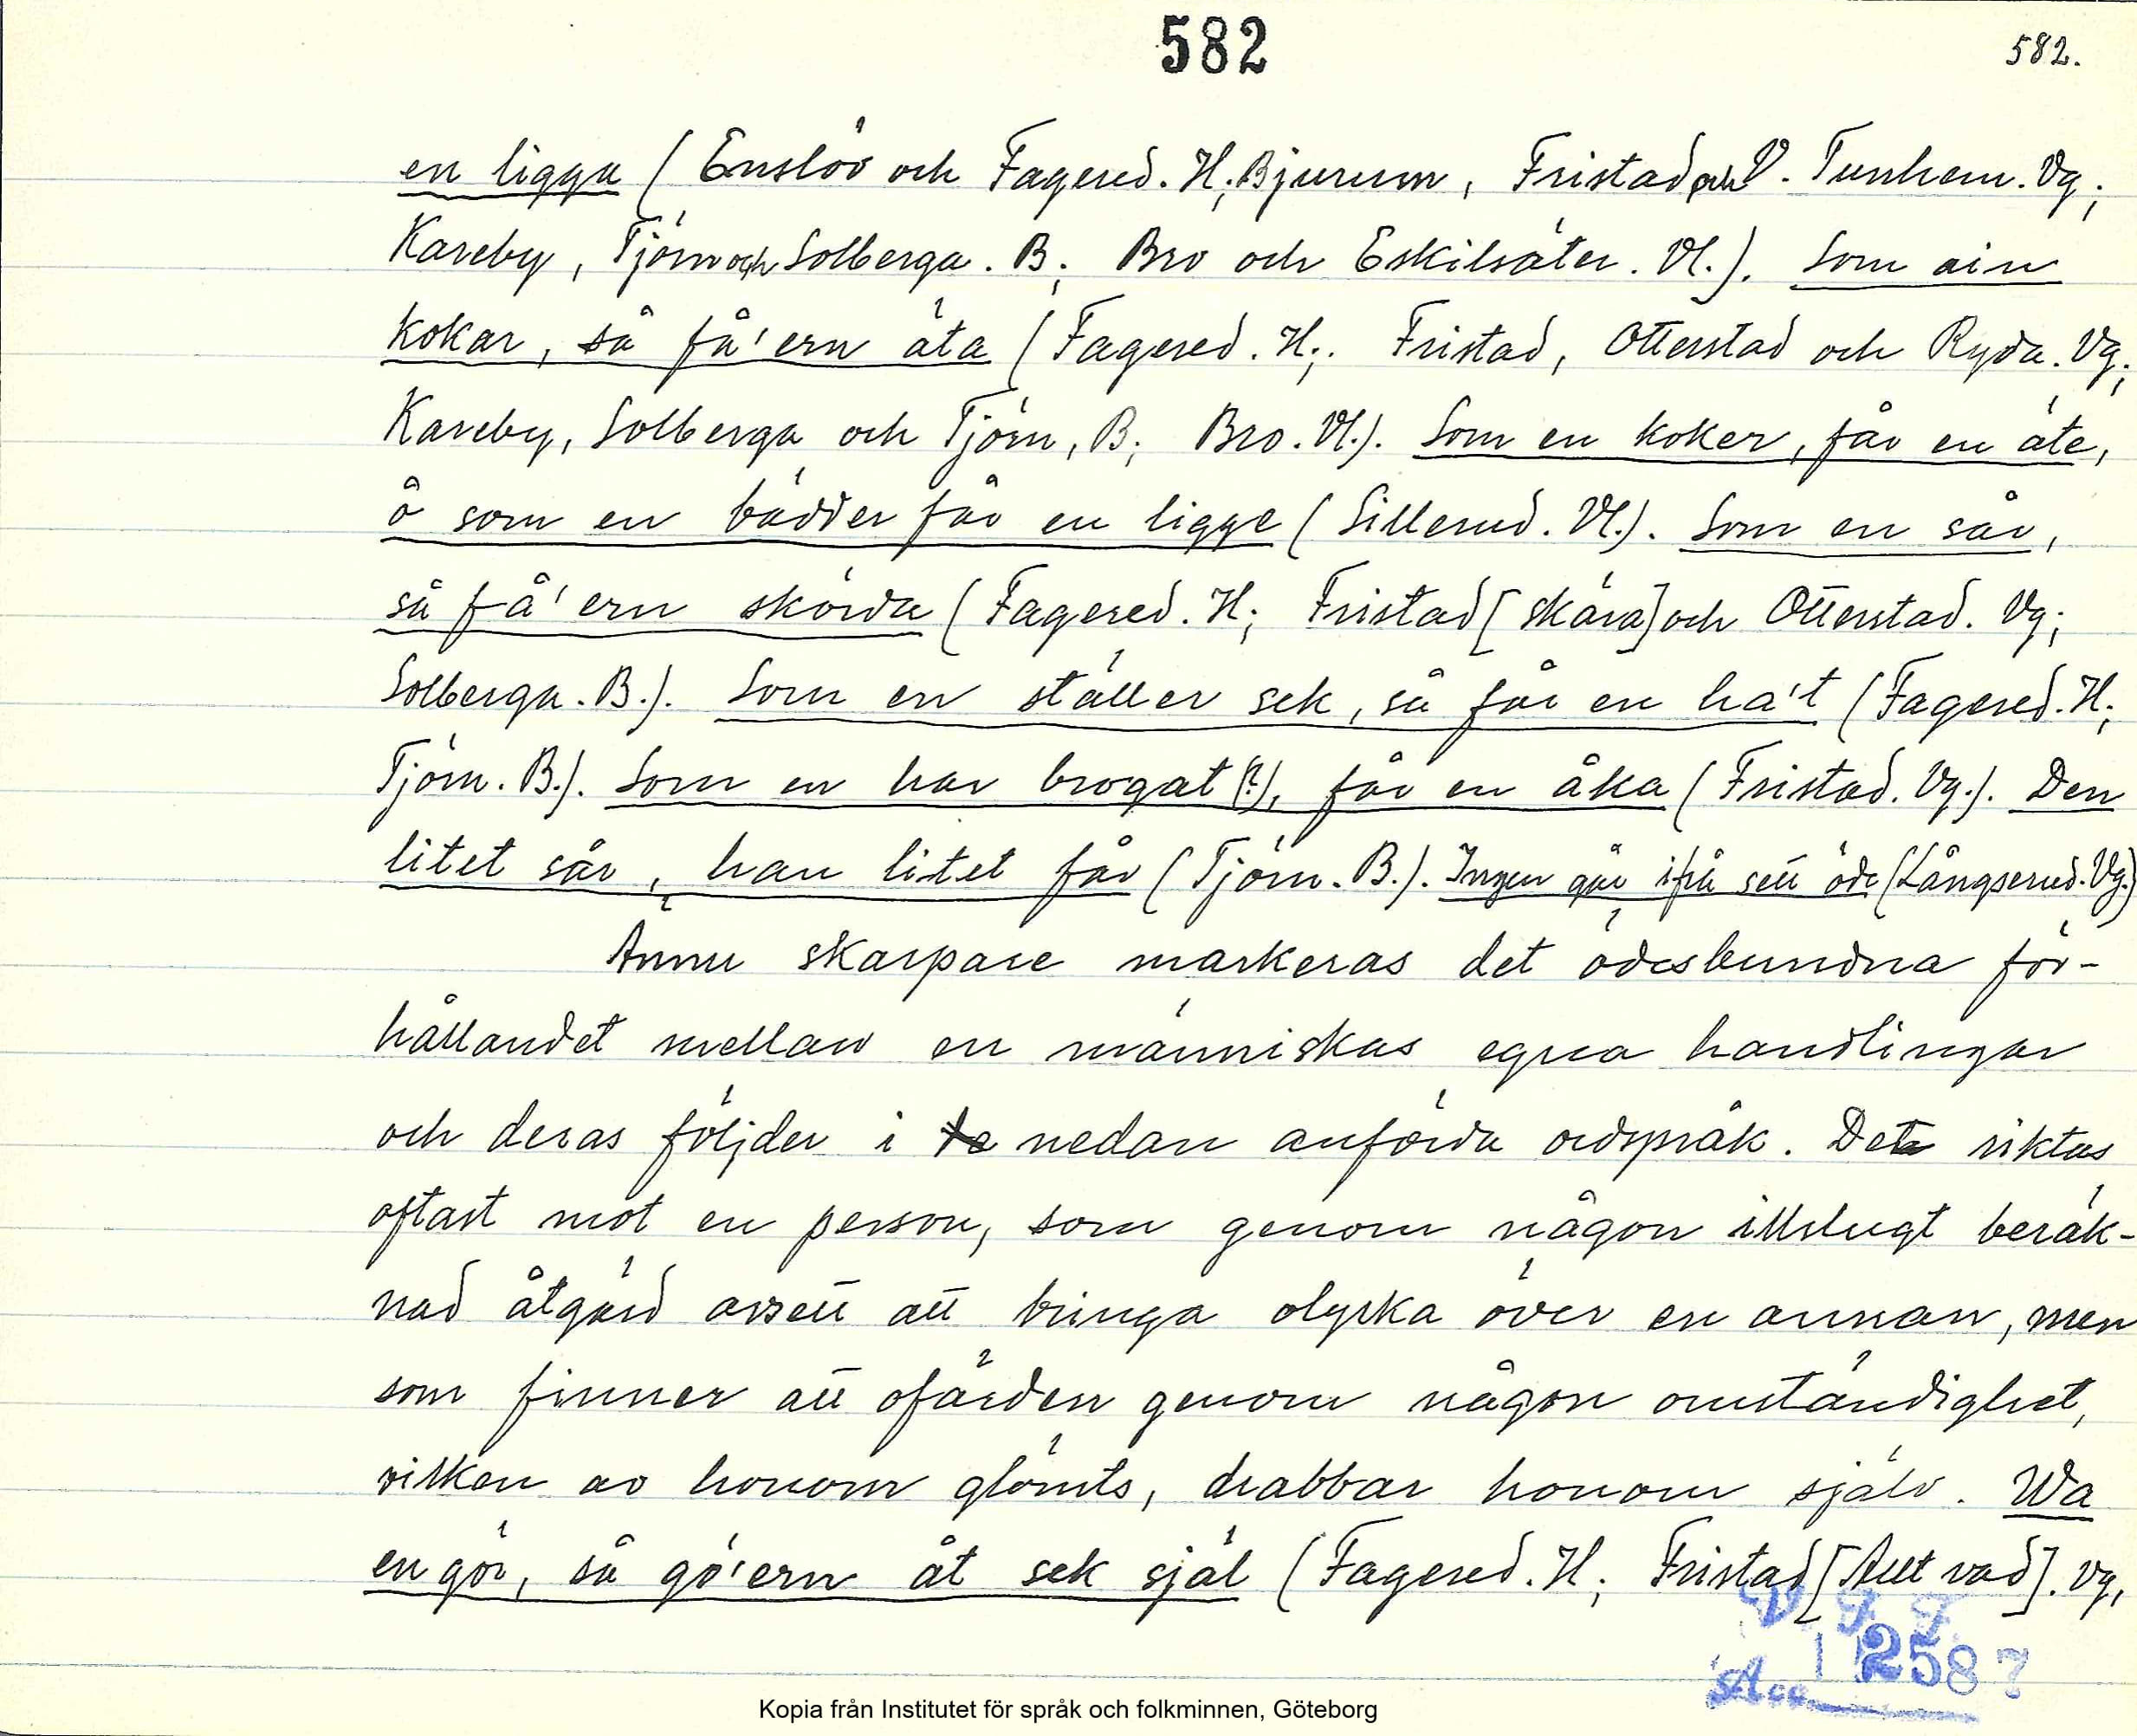 582
582.
en ligga (Enslöv och Fagered. H; Bjurum, Fristad och V. Tunhem. Vg;
Kareby, Tjörn och Solberga. B; Bro och Eskilsäter. Vl.). Som ain
kokar, så få'ern äta (Fagered. H; Fristad, Otterstad och Ryda. Vg;
Kareby, Solberga och Tjörn, B; Bro. Vl.). Som en koker, får en äte,
å som en bädder får en ligge (Sillerud. Vl.). Som en sår,
så få'ern skörda (Fagered. H; Fristad [skära] och Otterstad. Vg;
Solberga. B.). Som en ställer sek, så får en ha't (Fagered. H;
Tjörn. B.). Som en har brogat (?), får en åka (Fristad. Vg.). Den
litet sår, han litet får (Tjörn. B.). Ingen går ifrå sett öde (Långserud. Vg.)
Ännu skarpare markeras det ödesbundna för-
hållandet mellan en människas egna handlingar
och deras följder i nedan anförda ordspråk. Det riktas
oftast mot en person, som genom någon illslugt beräk-
nad åtgärd avsett att bringa olycka över en annan, men
som finner att ofärden genom någon omständighet,
vilken av honom glömts, drabbar honom själv. Wa
en gör, så gö'ern åt sek själ (Fagered. H; Fristad [Allt vad]. Vg,
V. F. F.
Acc. 2587
Kopia från Institutet för språk och folkminnen, Göteborg